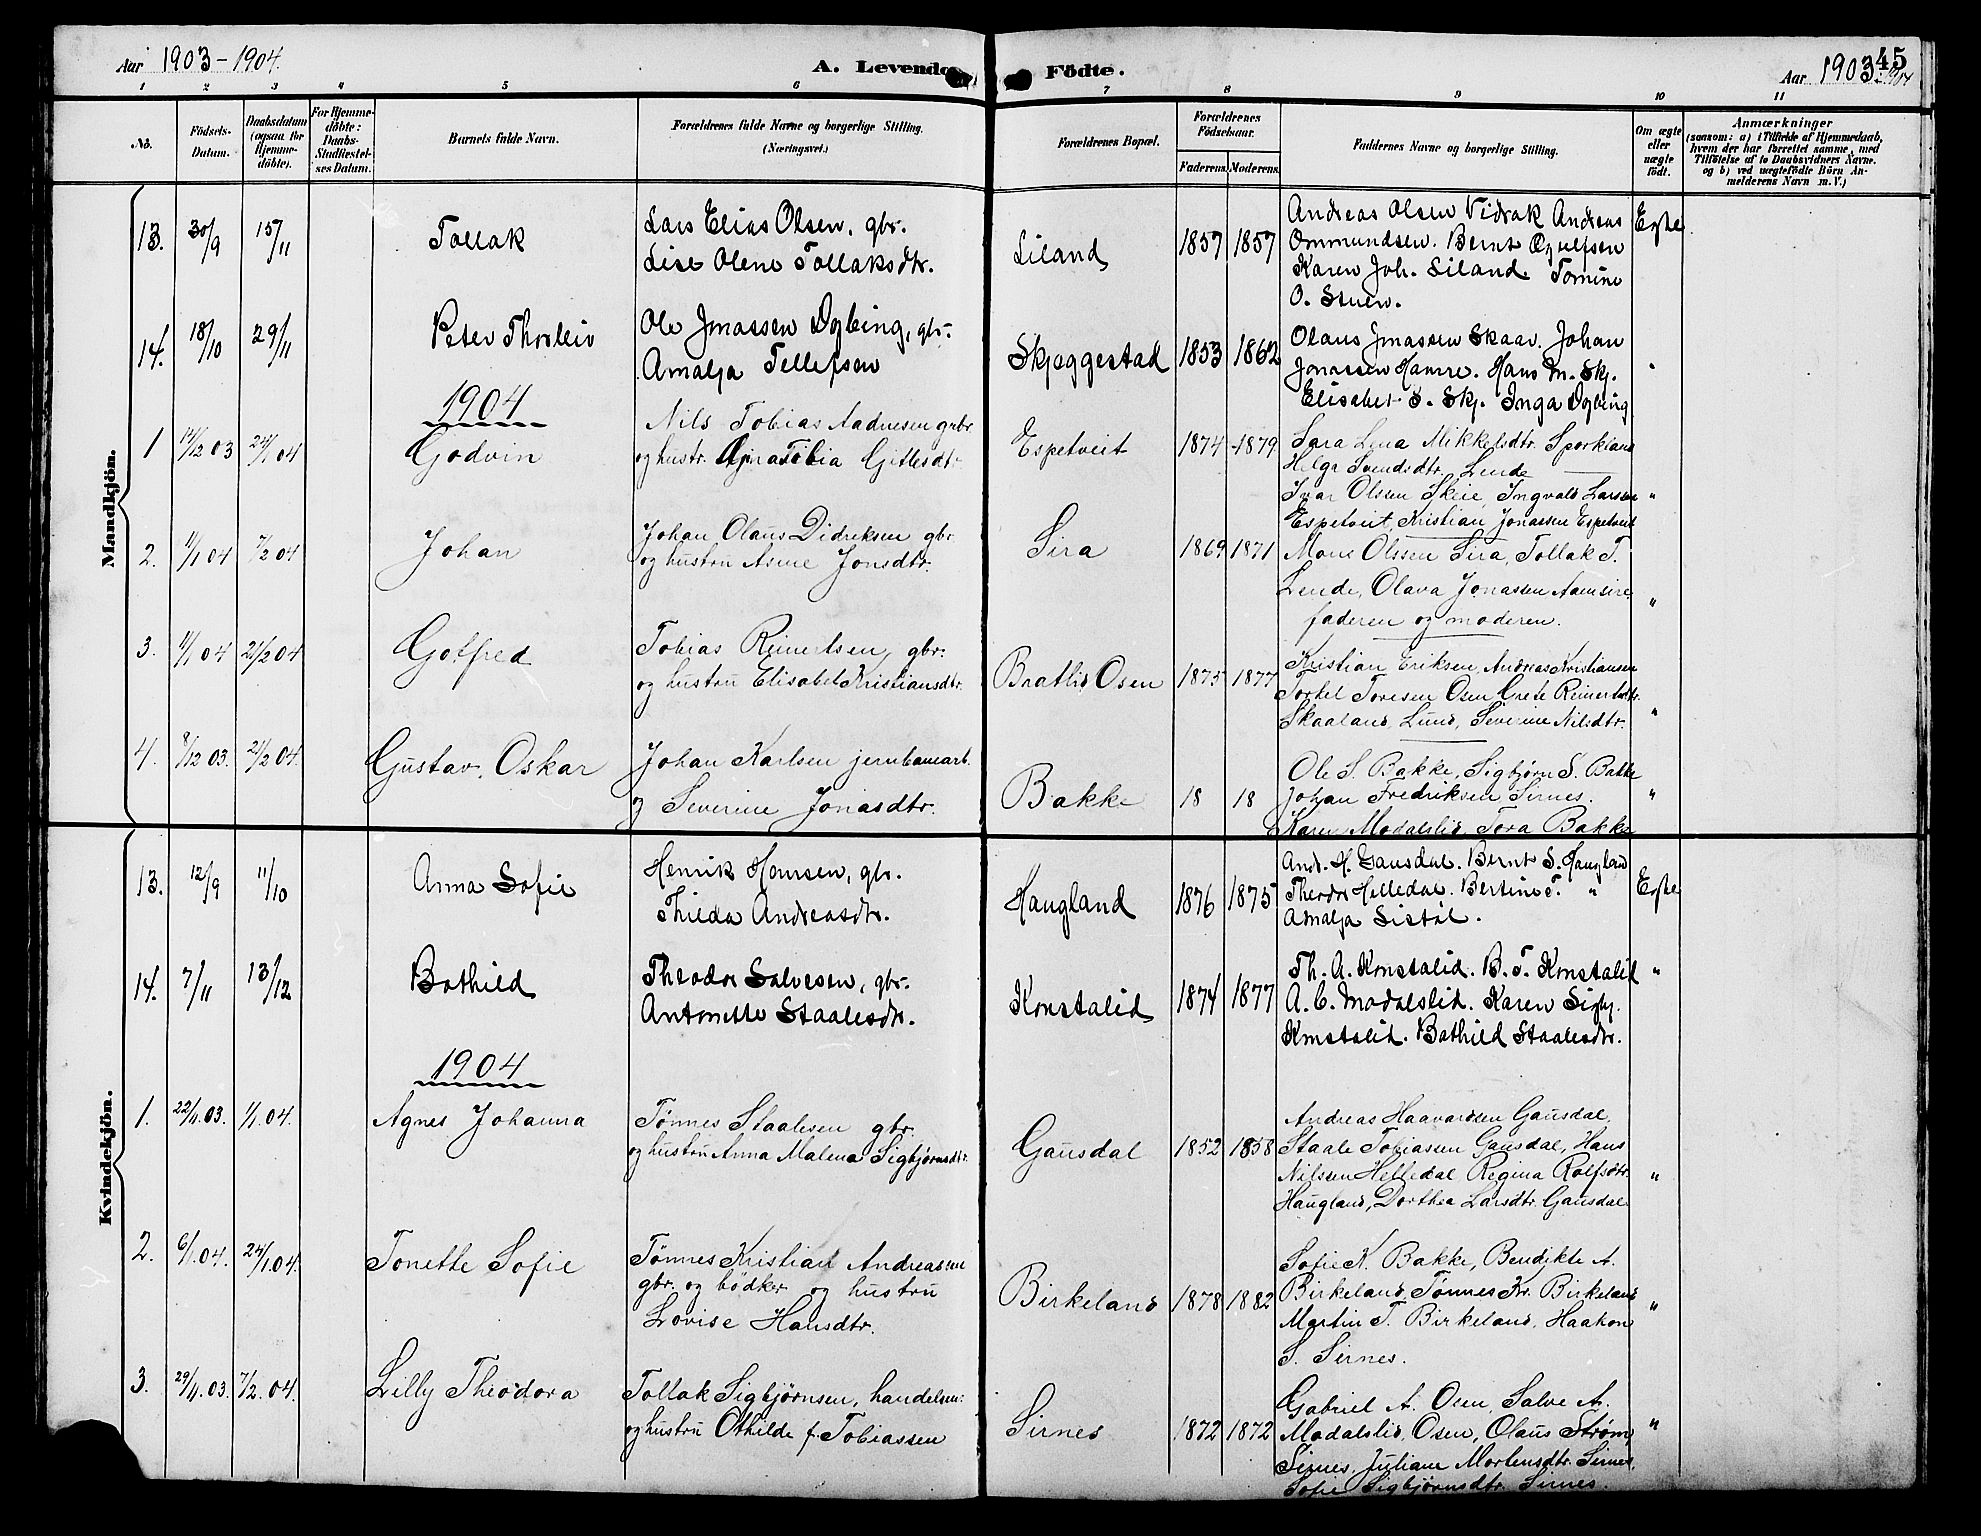 Aar 1903-1904.
A. Levende Födte.
Aar 1903-1904
45
1 2 3 4 5 6 7 8 9 10 11
No. Födsels-Datum. Daabsdatum (ogsaa for Hjemmedöbte). For Hjemmedöbte: Daabs-Stadfæstelses Datum. Barnets fulde Navn. Forældrenes fulde Navne og borgerlige Stilling. (Næringsvei.) Forældrenes Bopæl. Forældrenes Födselsaar. Faderens. Moderens. Faddernes Navne og borgerlige Stilling. Om ægte eller uægte födt. Anmærkninger
(saasom: a) i Tilfælde af Hjemmedaab,
hvem der har forrettet samme, med
Tilföielse af to Daabsvidners Navne.
og b) ved uægtefödte Börn Anmelderens Navn m. V.)
Mandkjön.
13. 30/9 15/11 Tollak
Lars Elias Olsen, gbr.
Lise Olene Tollaksdtr.
Liland 1857 1857
Andreas Olsen Vidrak Andreas
Ommundsen. Bernt
Karen Joh. Siland Tomine
O. Stuen.
Egte
14. 18/10 29/11 Peter Thorleiv
Ole Jonassen Dybing, gbr.
Amalja Tellefsen
Skjeggestad 1853 1862
Olaus Jonassen Skaar. Johan
Jonassen Hamre. Hans M. Skj.
Elisabet S. Skj. Inga Dybing
"
1904
1 14/12 03 24/1 04 Godvin
Nils Tobias Aadnesen grbr
og hustr. Gina Tobia Gitlesdtr
Espetveit 1874 1879
Sara Lena Mikkelsdtr. Sporkland
Helga Svendsdtr. Lende
Ivar Olsen Skeie, Ingvald Larsen
Espetveit, Kristian Jonassen Espetveit
"
2. 11/1 04 7/2 04 Johan
Johan Olaus Didriksen gbr
og hustru Asine Jonsdtr.
Sira 1869 1871
Mons Olssen Sira, Tollak T.
Lende, Olava Jonassen Aamsire
faderen og moderen.
"
3. 11/1 04 21/2 04 Gotfred
Tobias Reinertsen, gbr.
og hustru Elisabet Kristiansdtr.
Bratlid, Osen 1875 1877
Kristian Eriksen, Andreas Kristiansen
Torkel Toresen Osen Grete Reinertsdtr.
Skaaland, Lund, Severine Nilsdtr.
"
4. 8/12 03. 21/2 04. Gustav Oskar
Johan Karlsen jernbanearb.
og Severine Jonasdtr.
Bakke 18 18
Ole S. Bakke, Sigbjørn S. Bakke
Johan Fredriksen Sirnes.
Karen Modalslid, Tora Bakke
"
Kvindekjön.
13. 12/9 11/10 Anna Sofie
Henrik Hansen, gbr.
Thilda Andreasdtr.
Haugland 1876 1875
And. H. Gausdal. Bernt S. Haugland
Theodor Helledal. Bertine T. "
Amalja Sistöl.
Egte
14. 7/11 13/12 Bothild
Theodor Salvesen, gbr.
Antonette Staalesdtr.
Konstalid 1874 1877
Th. A. Konstalid. B. T. Konstalid
A. C. Modalslid. Karen Sigbj.
Konstalid. Bothild Staalesdtr.
"
1904
1. 22/11.03. 1/1.04. Agnes Johanna
Tønnes Staalesen gbr.
og hustru Anna Malena Sigbjørnsdtr.
Gausdal 1852 1858
Andreas Haavardsen Gausdal,
Staale Tobiassen Gausdal, Hans
Nilssen Helledal Regina Rolfsdtr.
Haugland, Dorthea Larsdtr. Gausdal
"
2. 6/1.04. 24/1.04. Tonette Sofie
Tønnes Kristian Andreassen
gbr. og bödker og hustru
Lovise Hansdtr.
Birkeland 1878 1882
Sofie K. Bakke, Bendikte A.
Birkeland, Tønnes Kr. Birkeland
Martin T. Birkeland, Haakon
S. Sirnes.
"
3. 29/11.03. 7/2.04. Lilly Theodora
Tollak Sigbjørnsen, handelsm:
og hustru Othilde f. Tobiassen
Sirnes 1872 1872
Gabriel A. Osen, Salve A.
Modalslid, Osen, Olaus Strøm,
Sirnes, Juliane Mortensdtr. Sirnes,
Sofie Sigbjørnsdtr. Sirnes.
"